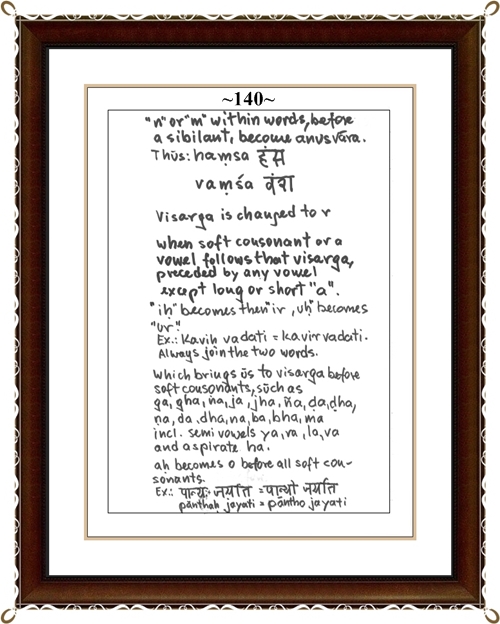 ~140~
"n" or "m" within words, before
a sibilant, become anusvāra.
Thūs: haṃsa हंस
vaṃśa वंश
Visarga is changed to r
when soft consonant or a
vowel follows that visarga,
preceded by any vowel
except long or short "a".
"iḥ" becomes then "ir, uḥ" becomes
"ur."
Ex.: Kaviḥ vadati = kavirvadati.
Always join the two words.
Which brings ūs to visarga before
soft consonants, sūch as
ga, gha, ṅa, ja, jha, ña, ḍa, ḍha,
ṇa, da, dha, na, ba, bha, ma
incl. semi vowels ya, ra, la, va
and aspirate ha.
ah becomes o before all soft con-
sonants.
Ex.: पान्थः जयति = पान्थो जयति
pānthaḥ jayati = pāntho jayati